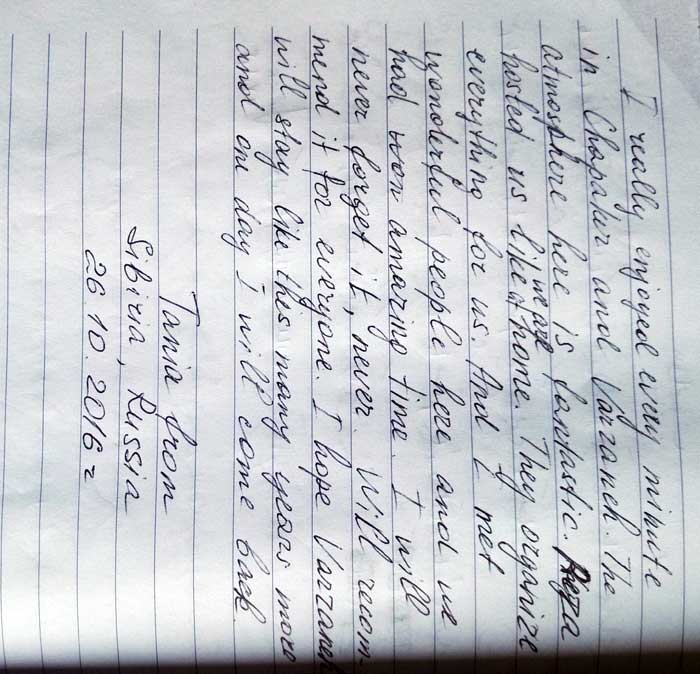 I really enjoyed every minute
in Chapaker and Varzaneh. The
atmosphere here is fantastic. Reza
hosted us like we are home. They organize
everything for us. And I met
wonderful people here and we
had won amazing time. I will
never forget it, never. Will recom-
mend it for everyone. I hope Varzaneh
will stay like this many years more
and one day I will come back.
Tania from
Sibiria, Russia
26.10.2016 г